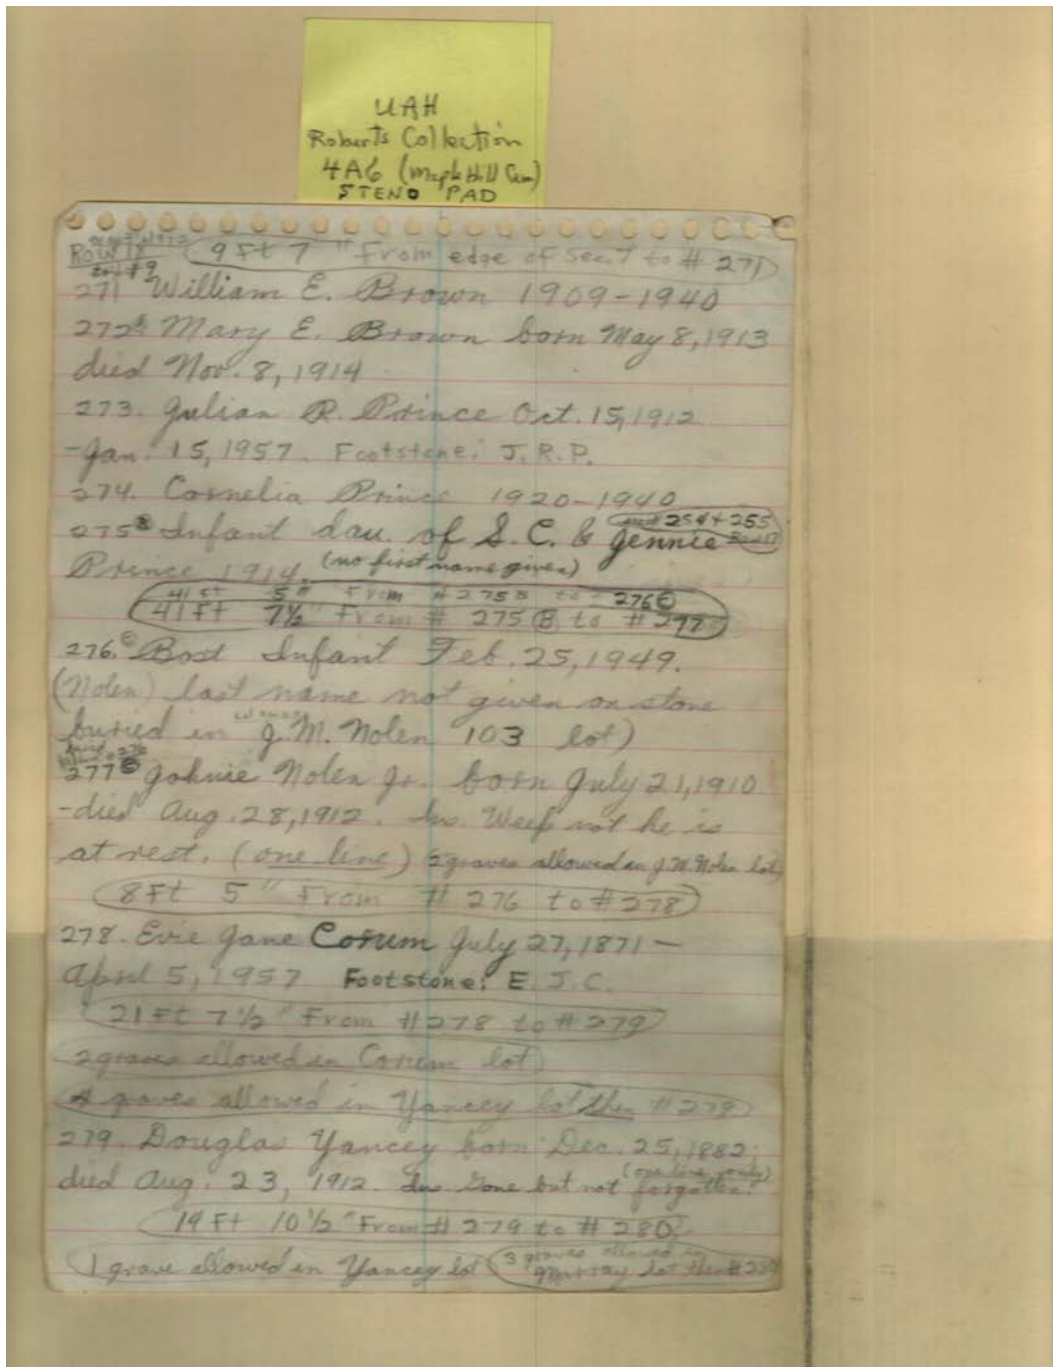 UAH
Roberts Collection
4A6 (Maple Hill Cem)
STENO PAD
Row 18
9 Ft 7 " From edge of Sec. 7 to # 271
271 William E. Brown 1909-1940
272. Mary E. Brown born May 8, 1913
died Nov. 8, 1914
273. Julian R. Prince Oct. 15, 1912
-Jan. 15, 1957. Footstone: J.R.P.
274. Cornelia Prince 1920-1940
# 254 + 255
275 Ⓑ Infant dau. of S. C. & Jennie Row 17
Prince 1914. (no first name given)
41 ft 5 " From # 275 B to 276 Ⓒ
41 Ft 7½ " From # 275 Ⓑ to # 277
276. Ⓒ Bost Infant Feb. 25, 1949.
(Nolen) last name not given on stone
buried in J. M. Nolen 103 lot)
277 Ⓒ Johnie Nolen Jr. born July 21, 1910
-died Aug. 28, 1912. Ins. Weep not he is
at rest. (one line) 2 graves allowed in J. M. Nolen lot
8 Ft 5 " From # 276 to # 278
278. Evie Jane Corum July 27, 1871 -
April 5, 1957 Footstone: E. J. C.
21 Ft 7½ " From # 278 to # 279
2 graves allowed in Corum lot
4 graves allowed in Yancey lot then # 279
279. Douglas Yancey born Dec. 25, 1882;
died Aug. 23, 1912. Ins. Gone but not forgotten. (one line only)
19 Ft 10½ " From # 279 to # 280
1 grave allowed in Yancey lot
3 graves allowed in
Murray lot then # 280